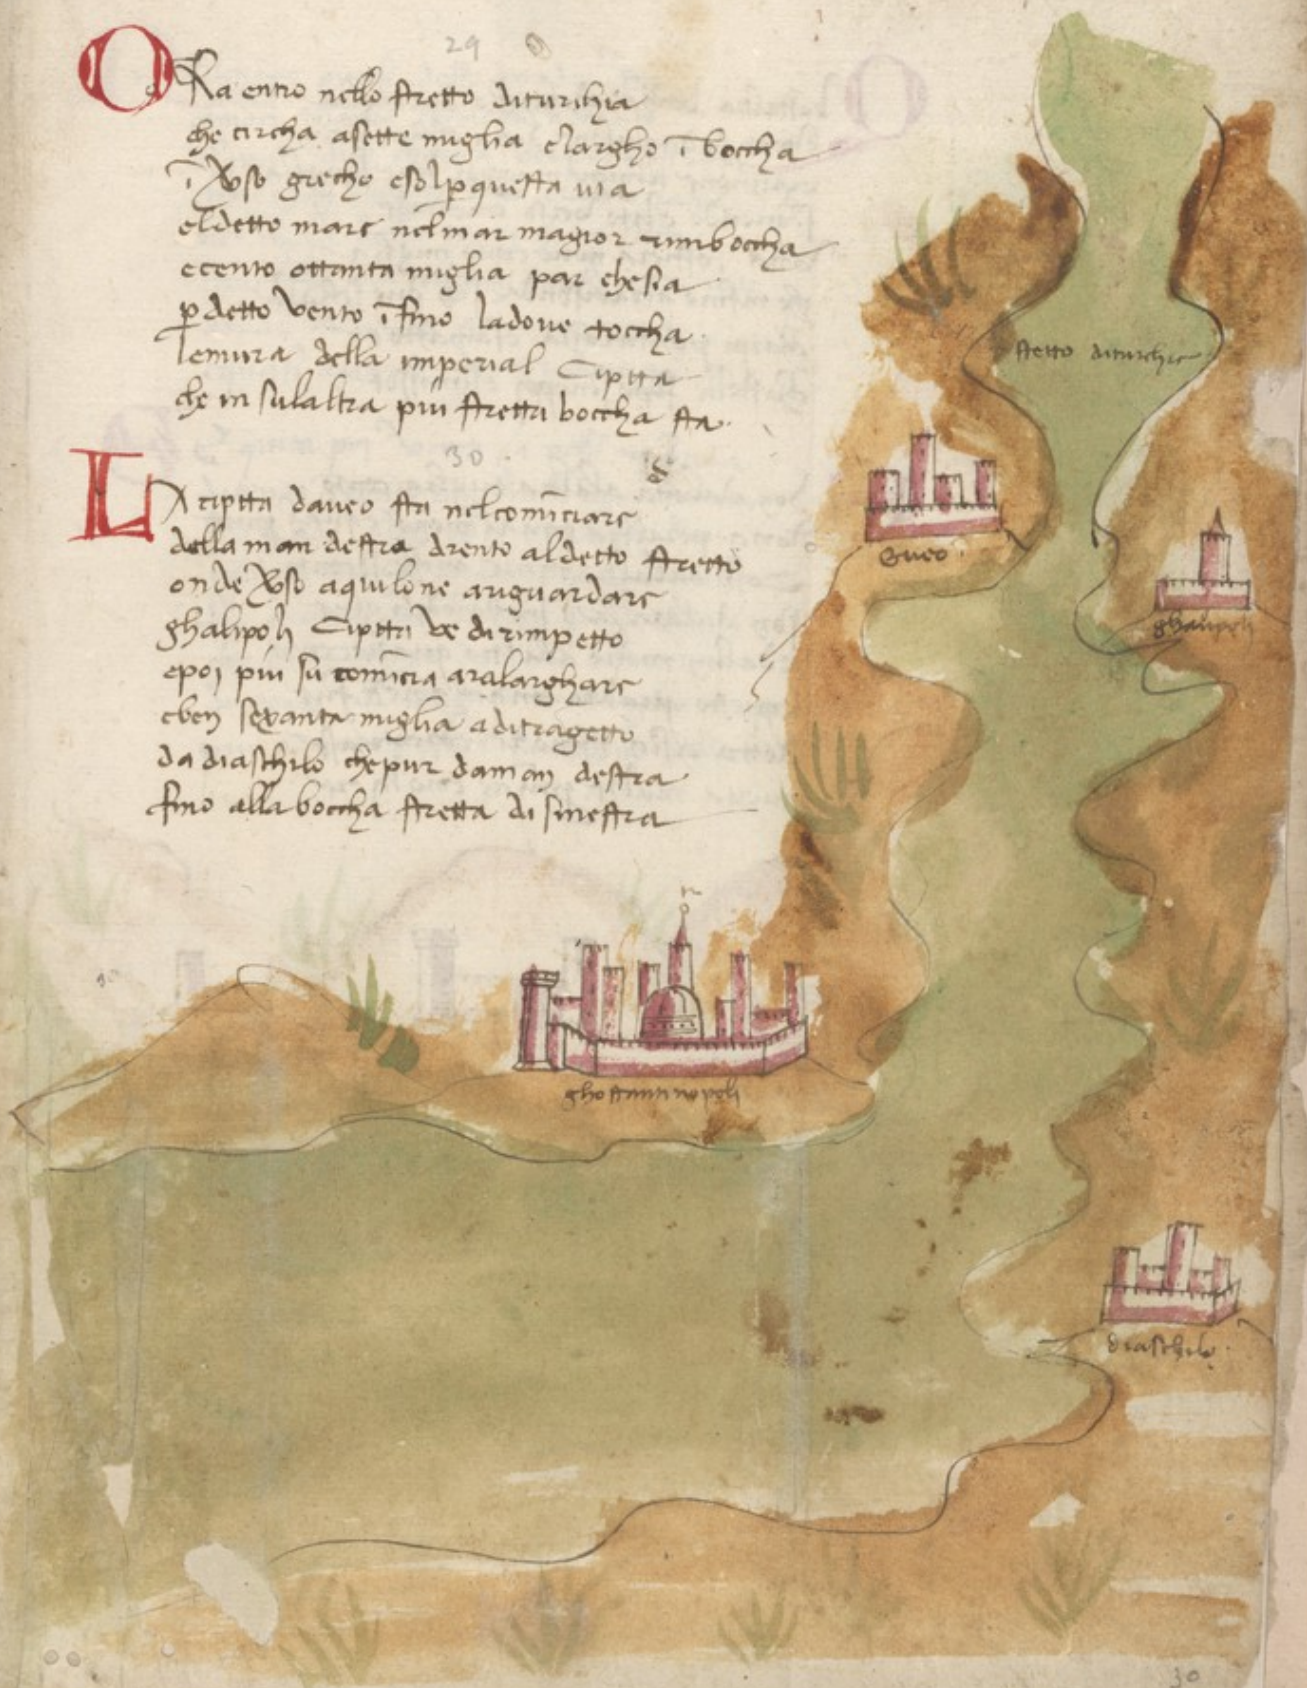 29
ORa entro nello stretto diturchia
che circha asette miglia elargho ī boccha
ī v̄so grecho esolp̱questa uia
eldetto mare nelmar magior rimboccha
ecento ottanta miglia par chesia
p̱ detto vento ī fino ladoue toccha
lemura della imperial Ciptta
che in sulaltra piu stretta boccha sta
30
LA ciptta daueo sta nelcomīciare
della man destra drento aldetto stretto
onde v̄so aquilone ariguardare
ghalipoli Ciptta ve dirimpetto
epoi piu su comīcia aralarghare
eben sexanta miglia aditragetto
da diaschilo chepur daman destra
fino alla boccha stretta di sinestra
stretto diturchia
aueo
ghalipoli
30
ghostantinopoli
diaschilo
30